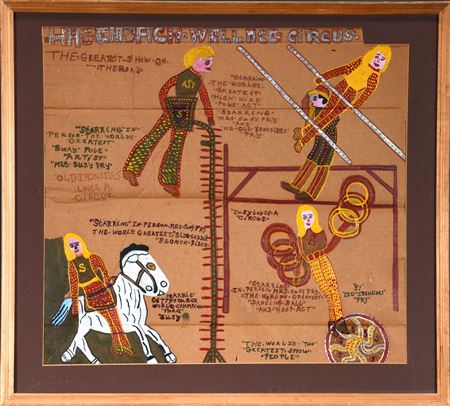 THE-GREATEST-SHOW-ON-
THE ROAD
"STARRING"IN-
PERSON-THE-WORLDS-
GREATEST-
"SWAY-POLE-
ARTIST"
"MRS-SUSY PRY
OLD-IRONSIDES
LOVES-A
CIRCUS-
STARRING
THE-WORLDS-
GREATEST-
"HIGH-WIRE
POLE-ACT"
STARRING
MRS-SUSY PRY
AND
MR-OLD-IRONSIDES
PRY
S
"STARRING"IN-PERSON-MRS-SUSY-PRY
THE-WORLD GREATEST-
BRONCO-RIDER
S
WORLD-CHAMPION
"SUSY"
"SUSY-LOVES-A
"CIRCUS"
"STARRING-
IN-PERSON-MRS-SUSY PRY
THE-WORLDS-GREATEST-
"DANCING-BALL-
AND-HOOP-ACT"
S
BY
"OLD-IRONSIDES"
PRY"
THE-WORLD'S-TWO"
GREATEST-SHOW-
"PEOPLE"